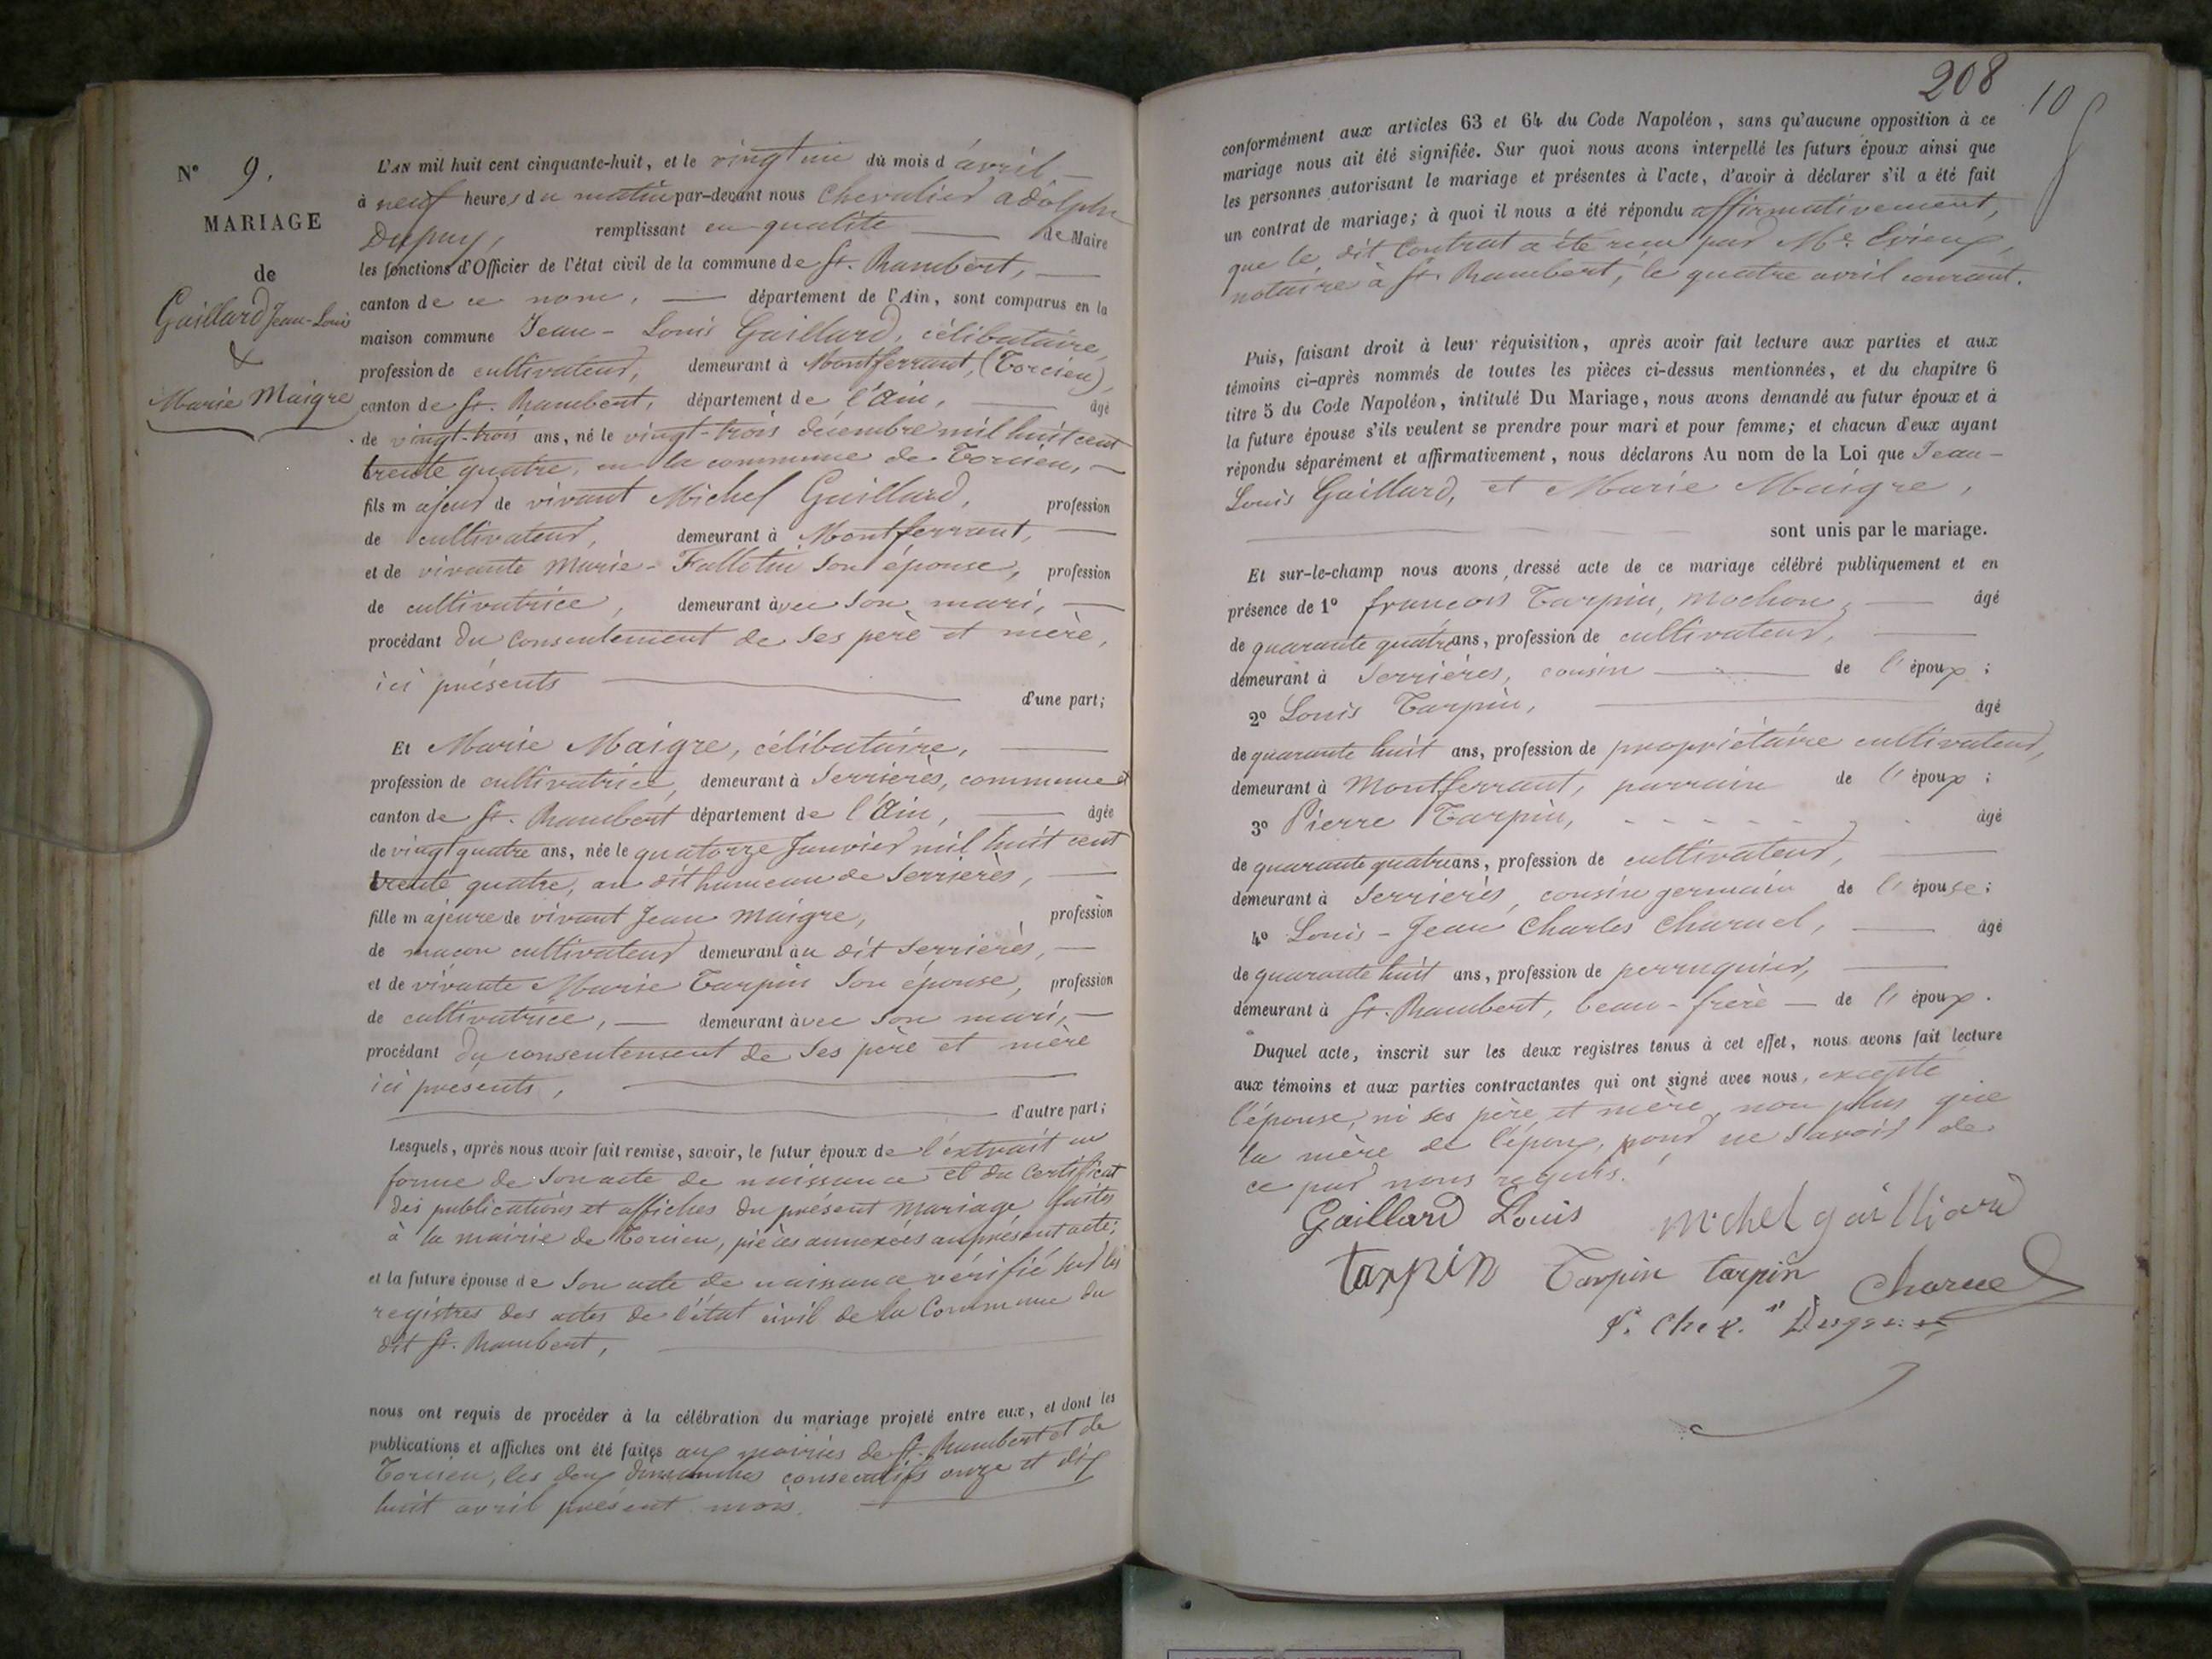 N° 9.
MARIAGE
de
Gaillard Jean-Louis
&
Marie Maigre
L'AN mil huit cent cinquante-huit, et le vingt un du mois d'avril
à neuf heures du matin par-devant nous Chevalier adolphe
Dupuy, remplissant en qualité de Maire
les fonctions d'Officier de l'état civil de la commune de St. Rambert,
canton de ce nom, département de l'Ain, sont comparus en la
maison commune Jean-Louis Gaillard, célibataire,
profession de cultivateur, demeurant à Montferrant, (Torcieu),
canton de St. Rambert, département de l'Ain, âgé
de vingt-trois ans, né le vingt-trois décembre mil huit cent
trente quatre, en la commune de Torcieu,
fils majeur de vivant Michel Gaillard, profession
de cultivateur, demeurant à Montferrant,
et de vivante Marie-Falletin son épouse, profession
de cultivatrice, demeurant avec son mari,
procédant du consentement de ses père et mère,
ici présents d'une part;
Et Marie Maigre, célibataire,
profession de cultivatrice, demeurant à Serrières, commune et
canton de St. Rambert département de l'Ain, âgée
de vingt quatre ans, née le quatorze Janvier mil huit cent
trente quatre, au dit hameau de Serrières,
fille majeure de vivant Jean Maigre, profession
de maçon cultivateur demeurant au dit Serrières,
et de vivante Marie Tarpin son épouse, profession
de cultivatrice, demeurant avec son mari,
procédant du consentement de ses père et mère
ici présents,
d'autre part;
Lesquels, après nous avoir fait remise, savoir, le futur époux de l'extrait en
forme de son acte de naissance et du certificat
des publications et affiches du présent mariage faites
à la mairie de Torcieu, pièces annexées au présent acte;
et la future épouse de son acte de naissance vérifié sur les
registres des actes de l'état civil de la Commune du
dit St. Rambert,
nous ont requis de procéder à la célébration du mariage projeté entre eux, et dont les
publications et affiches ont été faites aux mairies de St. Rambert et de
Torcieu, les deux dimanches consecutifs onze et dix
huit avril présent mois.
208
10
conformément aux articles 63 et 64 du Code Napoléon, sans qu'aucune opposition à ce
mariage nous ait été signifiée. Sur quoi nous avons interpellé les futurs époux ainsi que
les personnes autorisant le mariage et présentes à l'acte, d'avoir à déclarer s'il a été fait
un contrat de mariage; à quoi il nous a été répondu affirmativement,
que le dit Contrat a été reçu par Me. Evieux,
notaire à St. Rambert, le quatre avril courant.
Puis, faisant droit à leur réquisition, après avoir fait lecture aux parties et aux
témoins ci-après nommés de toutes les pièces ci-dessus mentionnées, et du chapitre 6
titre 5 du Code Napoléon, intitulé Du Mariage, nous avons demandé au futur époux et à
la future épouse s'ils veulent se prendre pour mari et pour femme; et chacun d'eux ayant
répondu séparément et affirmativement, nous déclarons Au nom de la Loi que Jean-
Louis Gaillard, et Marie Maigre,
sont unis par le mariage.
Et sur-le-champ nous avons dressé acte de ce mariage célébré publiquement et en
présence de 1° françois Tarpin, Mochon, âgé
de quarante quatre ans, profession de cultivateur,
demeurant à Serrières, cousin de l'époux;
2° Louis Tarpin, âgé
de quarante huit ans, profession de propriétaire cultivateur,
demeurant à Montferrant, parrain de l'époux;
3° Pierre Tarpin, âgé
de quarante quatre ans, profession de cultivateur,
demeurant à Serrières, cousin germain de l'épouse;
4° Louis-Jean Charles Charuel, âgé
de quarante huit ans, profession de perruquier,
demeurant à St. Rambert, beau-frère de l'époux.
Duquel acte, inscrit sur les deux registres tenus à cet effet, nous avons fait lecture
aux témoins et aux parties contractantes qui ont signé avec nous, excepté
l'épouse, ni ses père et mère, non plus que
la mère de l'époux, pour ne savoir de
ce par nous requis.
Gaillard Louis michel gailliard
tarpin Tarpin tarpin Charuel
Cher. Dupuy